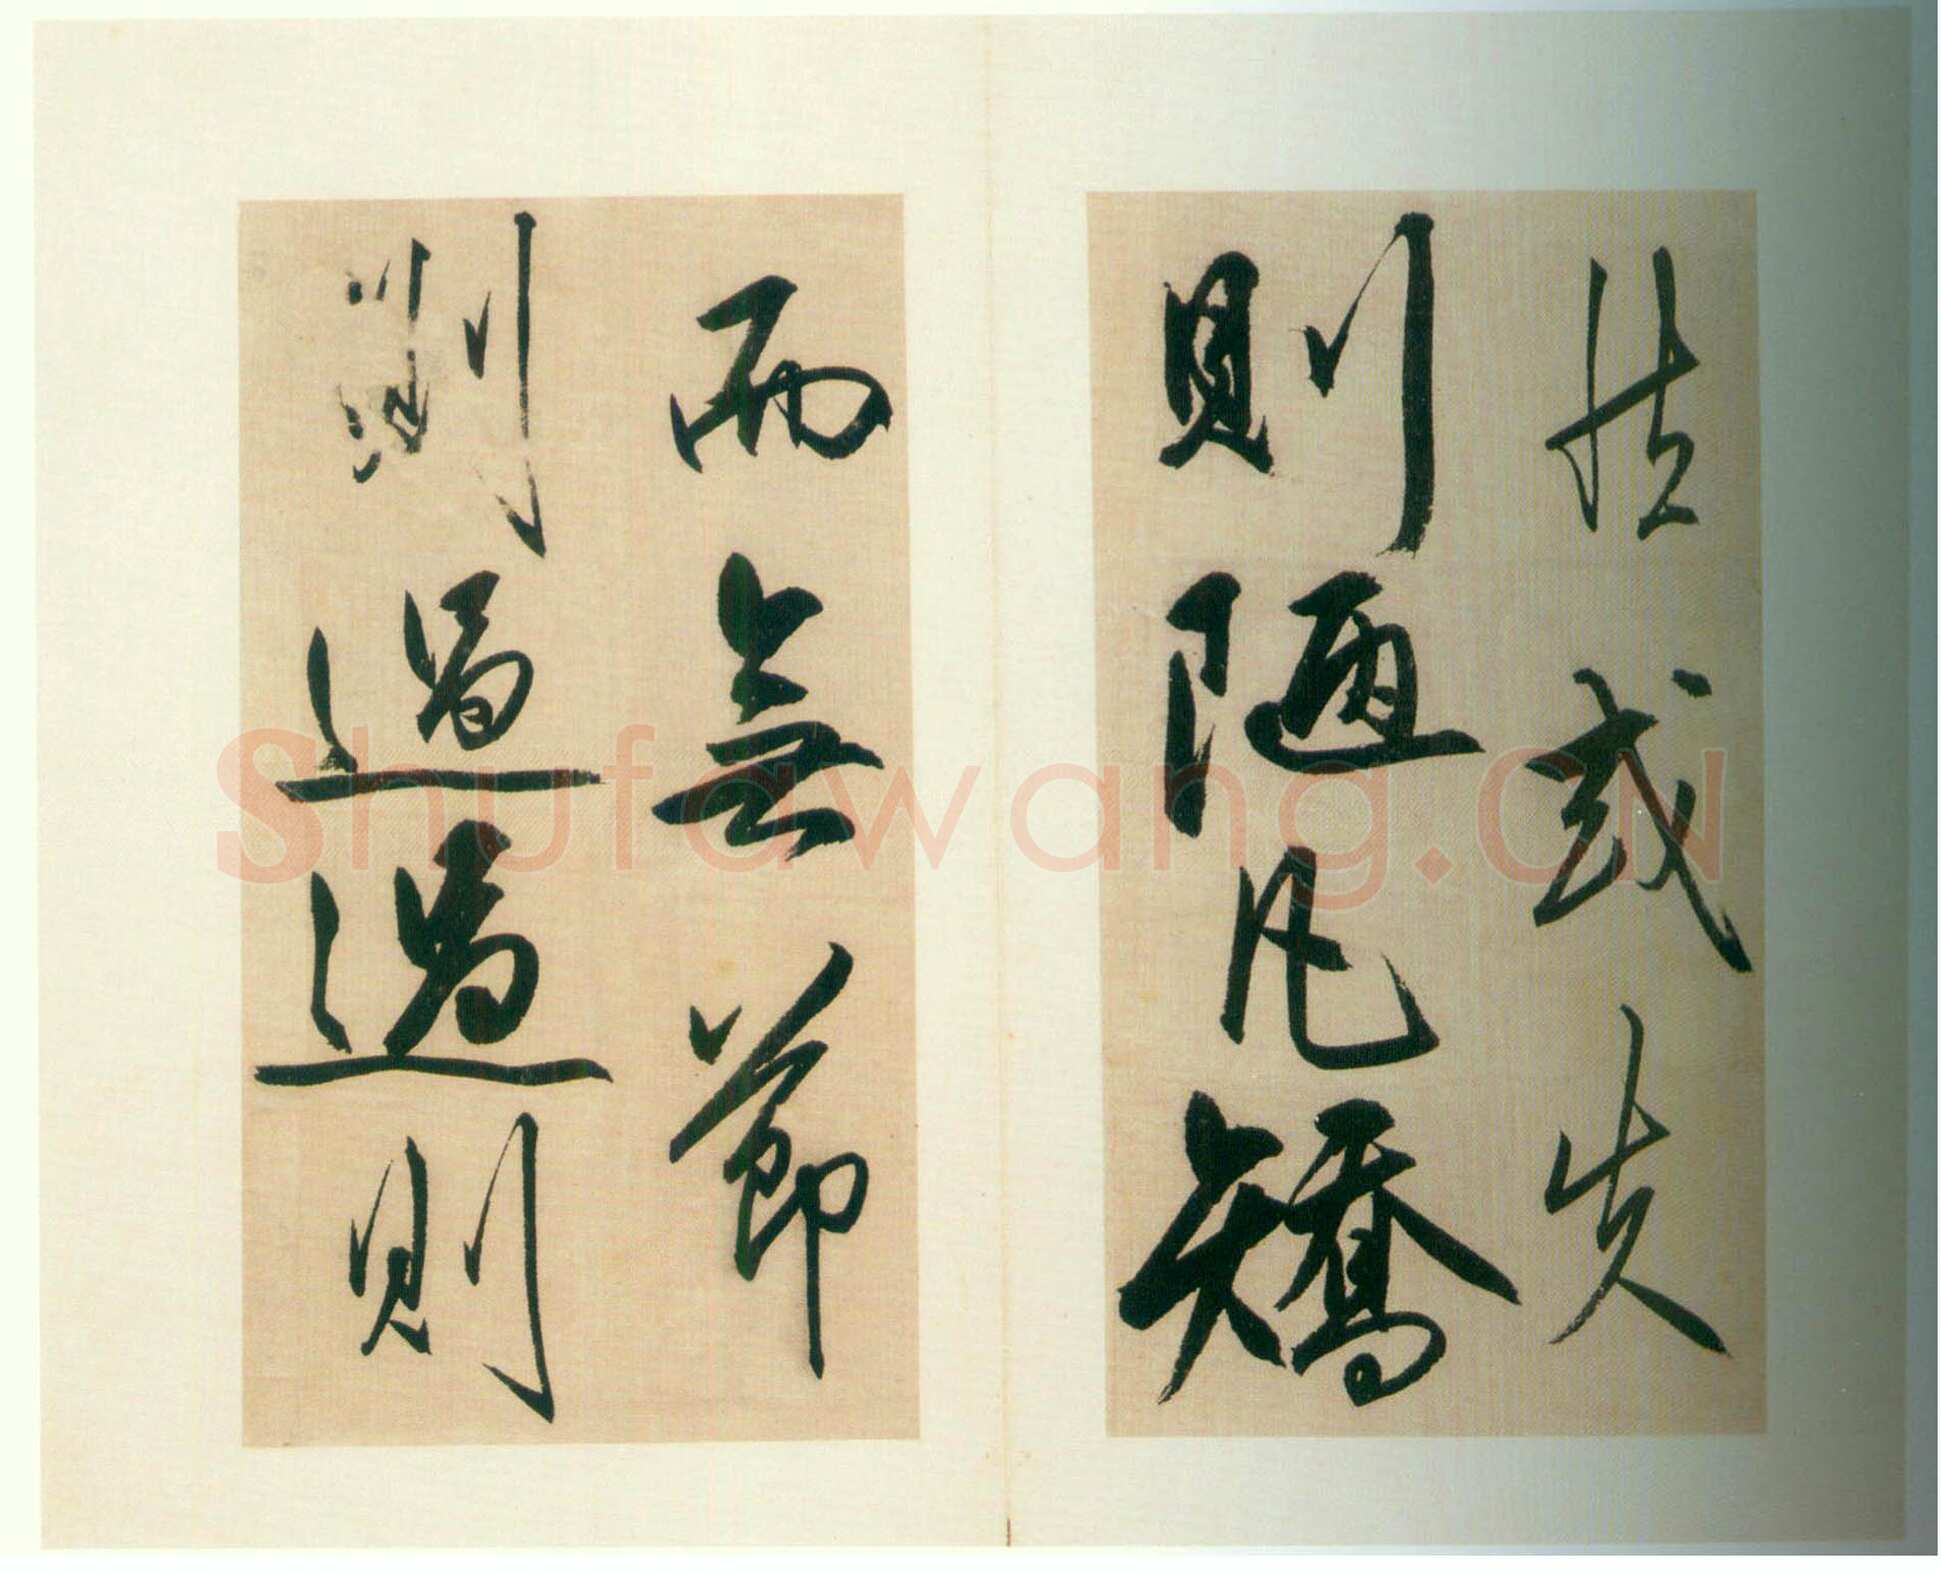 怯或失
則陋凡矯
而無節
則過過則
Shufawang.CN